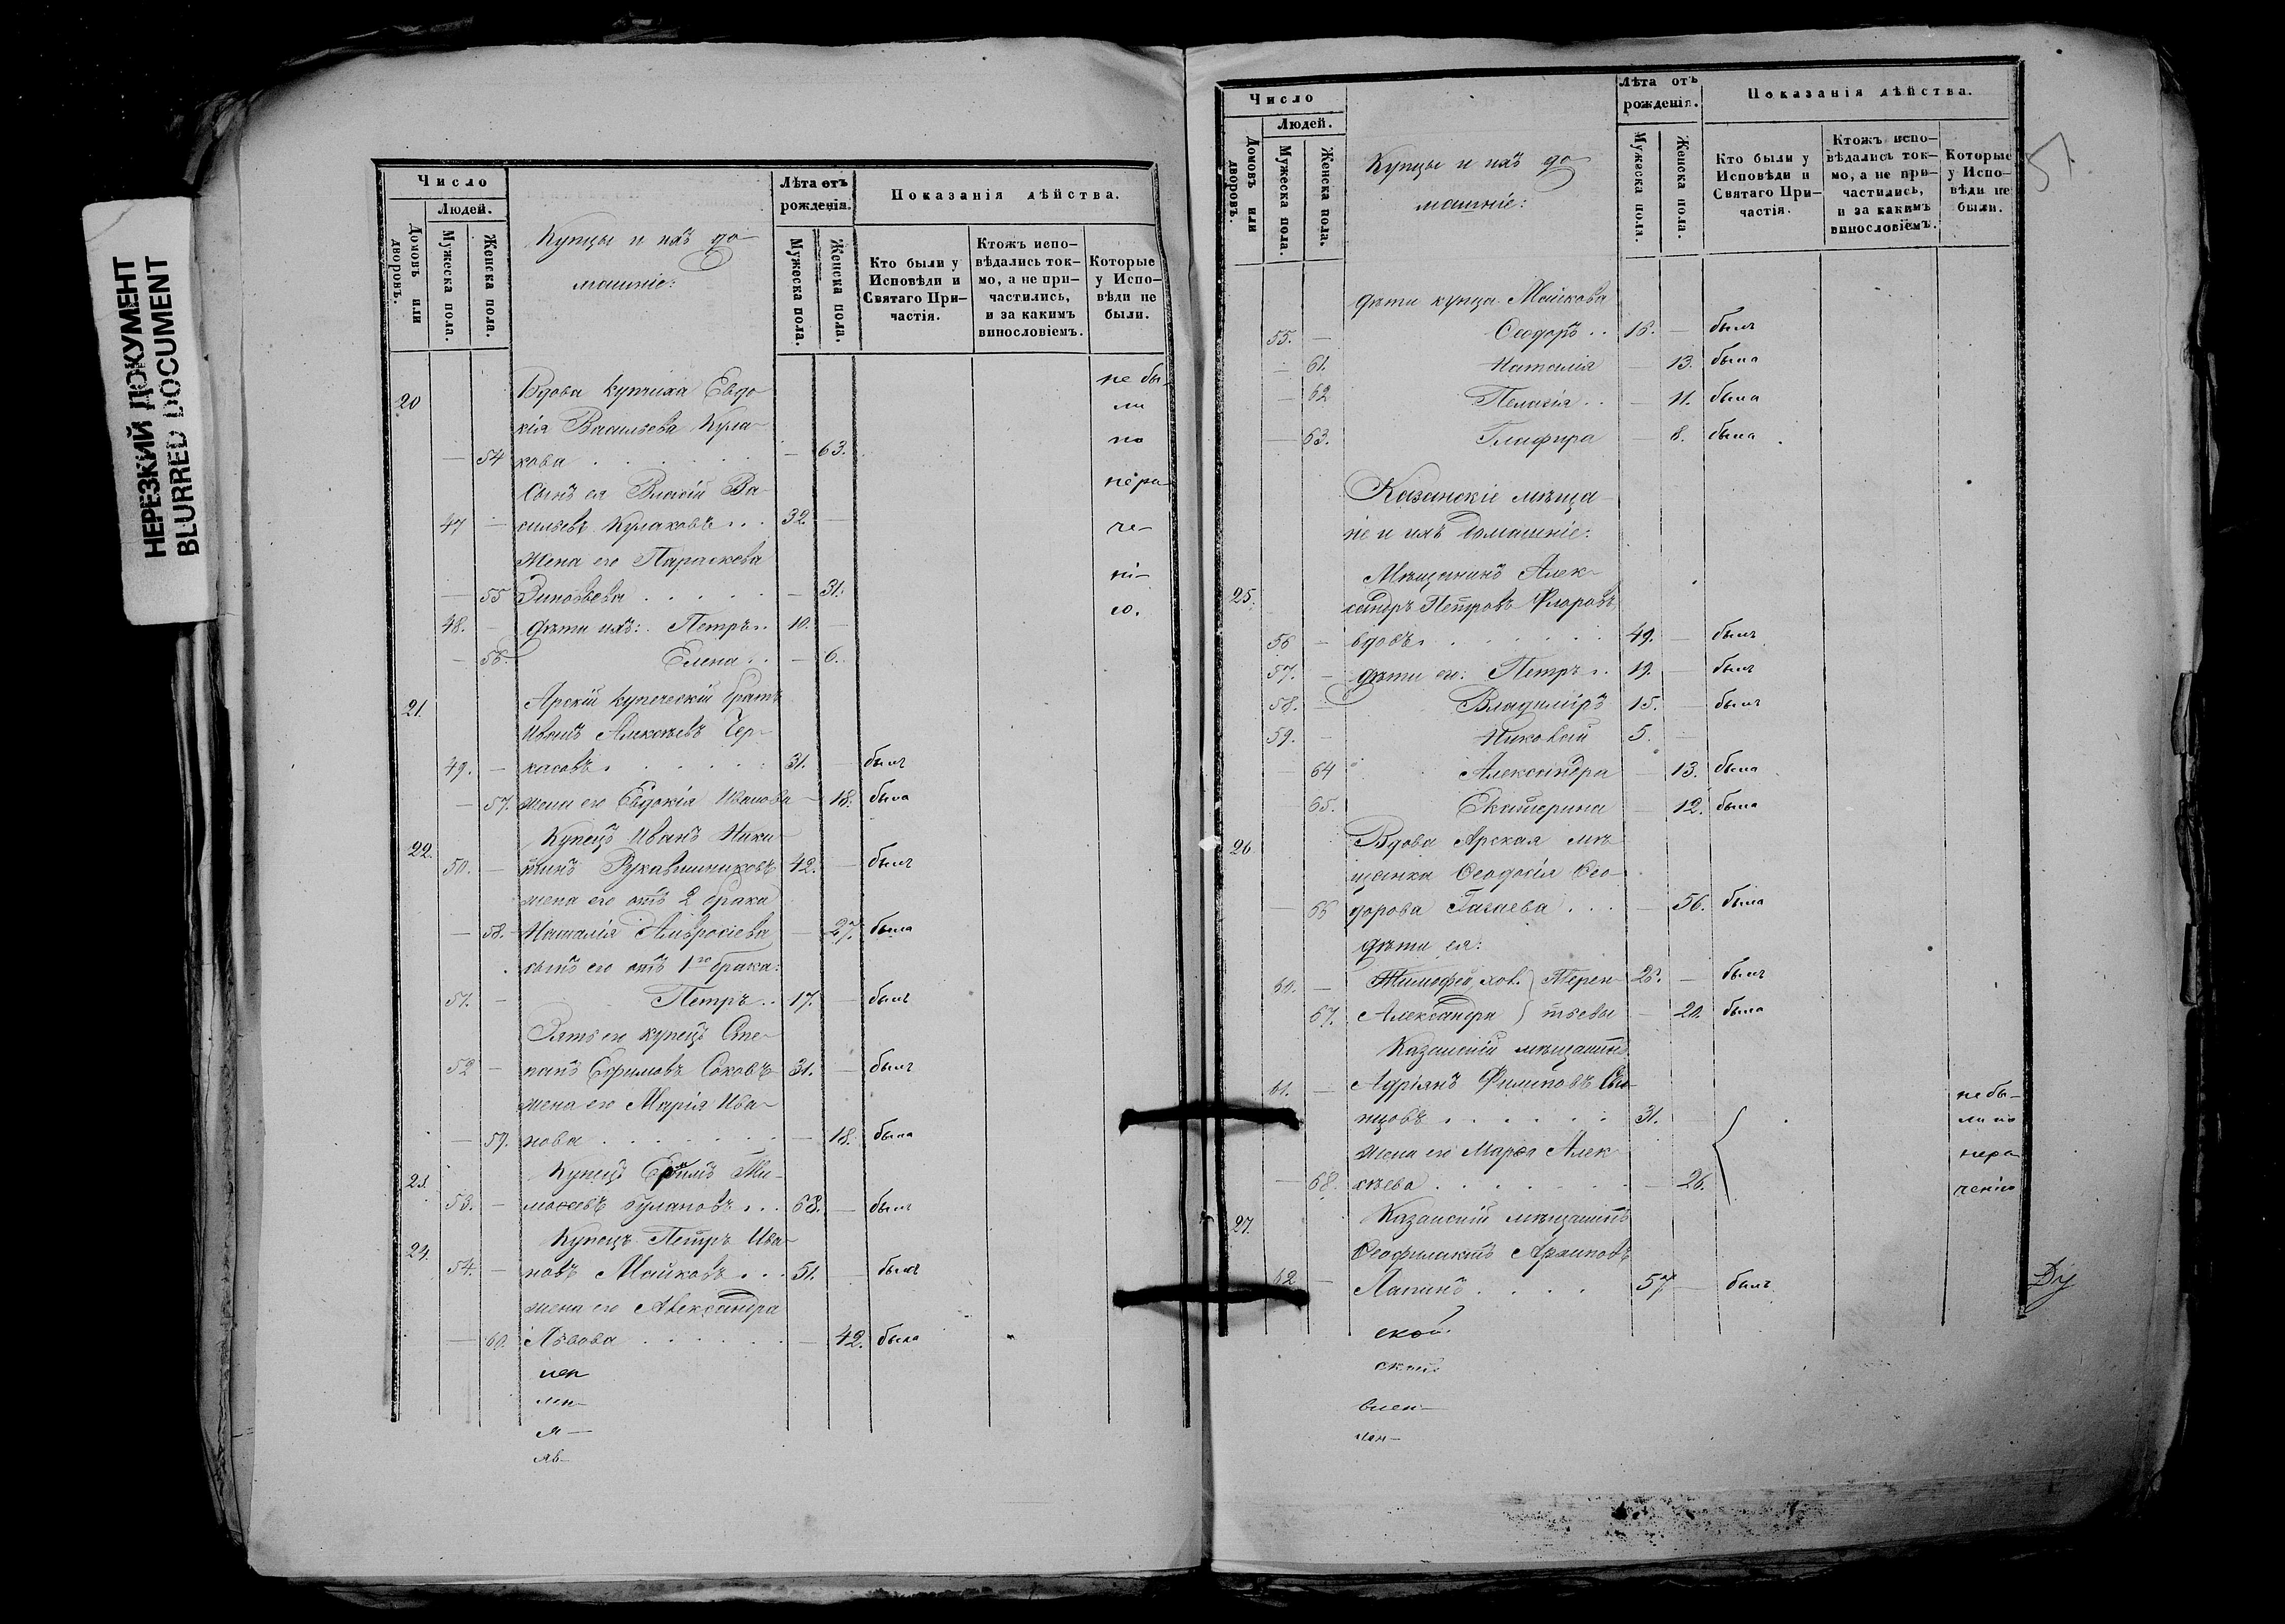 НЕРЕЗКИЙ ДОКУМЕНТ
BLURRED DOCUMENT
Число
Людей.
Домовъ или дворовъ.
Мужеска пола.
Женска пола.
Купцы и ихъ до-
машніе:
Лѣта отъ рожденія.
Мужеска пола.
Женска пола.
Показанія дѣйства.
Кто были у Исповѣди и Святаго При-частія.
Ктожъ испо-вѣдались ток-мо, а не при-частились, и за какимъ винословіемъ.
Которые у Испо-вѣди не были.
20 Вдова купчиха Евдо- не бы-
кія Васильева Кула- ли
— 54 кова . . . . . — 63. по
Сынъ ея Власій Ва- нера-
47 — сильевъ Кулаковъ . . 32. — че-
Жена его Параскева ні-
— 55 Зиновьева . . . . . — 31. ю.
48. — Дѣти ихъ: Петръ . . 10. —
— 56. Елена . . — 6.
21. Арскій купеческій братъ
Иванъ Алексѣевъ Чер-
49. — касовъ . . . . . 31. — былъ
— 57. жена его Евдокія Иванова — 18. была
22. Купецъ Иванъ Ники-
50. — тинъ Рукавишниковъ 42. — былъ
жена его отъ 2 брака
— 58. Наталія Амвросіева — 27. была
сынъ его отъ 1го брака:
51. — Петръ . . 17. — былъ
Зять его купецъ Сте-
52 — панъ Ефимовъ Соковъ 31. — былъ
жена его Марія Ива-
— 59. нова . . . . . . — 18. была
23. Купецъ Ермилъ Ти-
53. — моѳеевъ . . . 68. — былъ
24. Купецъ Петръ Ива-
54. — новъ Майковъ . . . 51. — былъ
жена его Александра
— 60. Львова . . . . . . — 42. была
лен-
я —
яв-
Число
Людей.
Домовъ или дворовъ.
Мужеска пола.
Женска пола.
Купцы и ихъ до-
машніе:
Лѣта отъ рожденія.
Мужеска пола.
Женска пола.
Показанія дѣйства.
Кто были у Исповѣди и Святаго При-частія.
Ктожъ испо-вѣдались ток-мо, а не при-частились, и за какимъ винословіемъ.
Которые у Испо-вѣди не были.
дѣти купца Майкова
55. — Ѳеодоръ . . 16. — былъ
— 61. Наталія — 13. была
— 62 Пелагія . . — 11. была
— 63. Глафира — 8. была
Казанскіе мѣща-
не и ихъ домашніе:
25. Мѣщанинъ Алек-
сандръ Петровъ Флоровъ
56 — вдовъ . . . . . . 49. — былъ
57. — дѣти его: Петръ . . 19. — былъ
58. — Владиміръ 15. — былъ
59. — Николай 5. —
— 64 Александра — 13. была
— 65. Екатерина — 12. была
26 Вдова Арская мѣ-
щанка Ѳеодосія Ѳео-
— 66 дорова Гагаева . . . — 56. была
дѣти ея:
60. — Тимофей, хол. } Терен- — былъ
— 67. Александра } тьевы — 20. была
Казанскій мѣщанинъ
61. — Адріянъ Филиповъ не бы-
. . . . . . 31. — ли по
жена его Марѳа Алек- нера-
— 68. сѣева . . . . . . — 26. ченію
27. Казанскій мѣщанинъ
Ѳеофилактъ Архиповъ
62 — Лапинъ . . . . 57 — былъ
Ду
ской